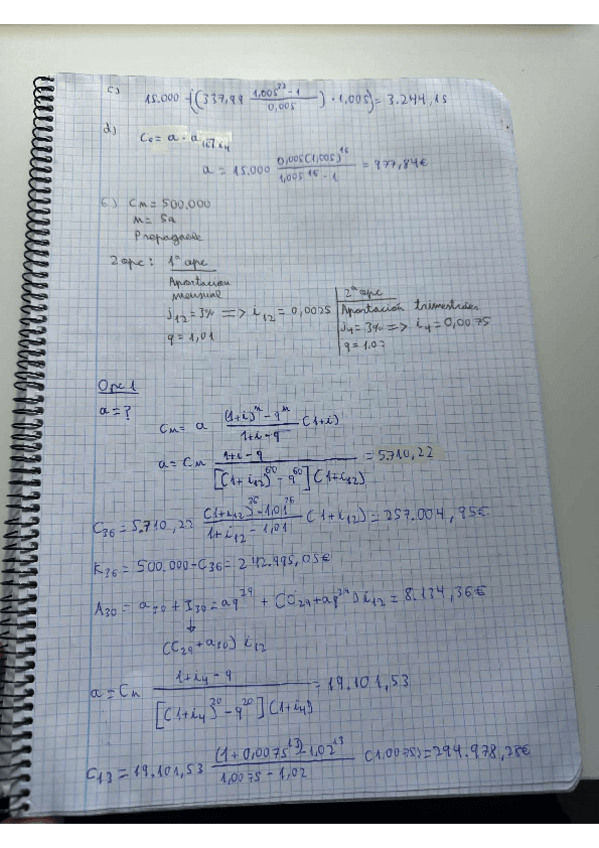 c) 15.000 - ((337,99 (1,005²² - 1)/0,005) · 1,005) = 3.244,15
d) C₀ = a · a
a = 15.000 (0,005(1,005)¹⁶)/(1,005¹⁶ - 1) = 977,84€
6) Cm = 500.000
m = 5a
Prepagable
2 opc: 1ª opc
Aportacion
mensual
j₁₂ = 3% => i₁₂ = 0,0025
q = 1,01
2ª opc
Aportación trimestrales
J₄ = 3% => i₄ = 0,0075
q = 1.02
Opc 1
a = ?
Cm = a ((1+i)ⁿ - qⁿ)/(1+i-q) (1+i)
a = Cm (1+i-q)/([(1+i₁₂)⁶⁰ - q⁶⁰](1+i₁₂)) = 5.710,22
C₃₆ = 5.710,22 ((1+i₁₂)³⁶ - 1,01³⁶)/(1+i₁₂ - 1,01) (1+i₁₂) = 257.004,95€
K₃₆ = 500.000 - C₃₆ = 242.995,05€
A₃₀ = a₃₀ + I₃₀ = aq²⁹ + (C₂₉ + aq²⁹) i₁₂ = 8.134,36€
↓
(C₂₉ + a₃₀) i₁₂
a = Cn (1+i₄ - q)/([(1+i₄)²⁰ - q²⁰](1+i₄)) = 19.101,53
C₁₃ = 19.101,53 ((1+0,0075)¹³ - 1,02¹³)/(1,0075 - 1,02) (1.0075) = 294.978,25€